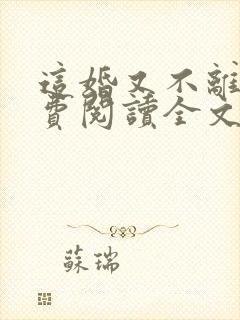 這婚又不離
費閱讀全文
蘇瑞